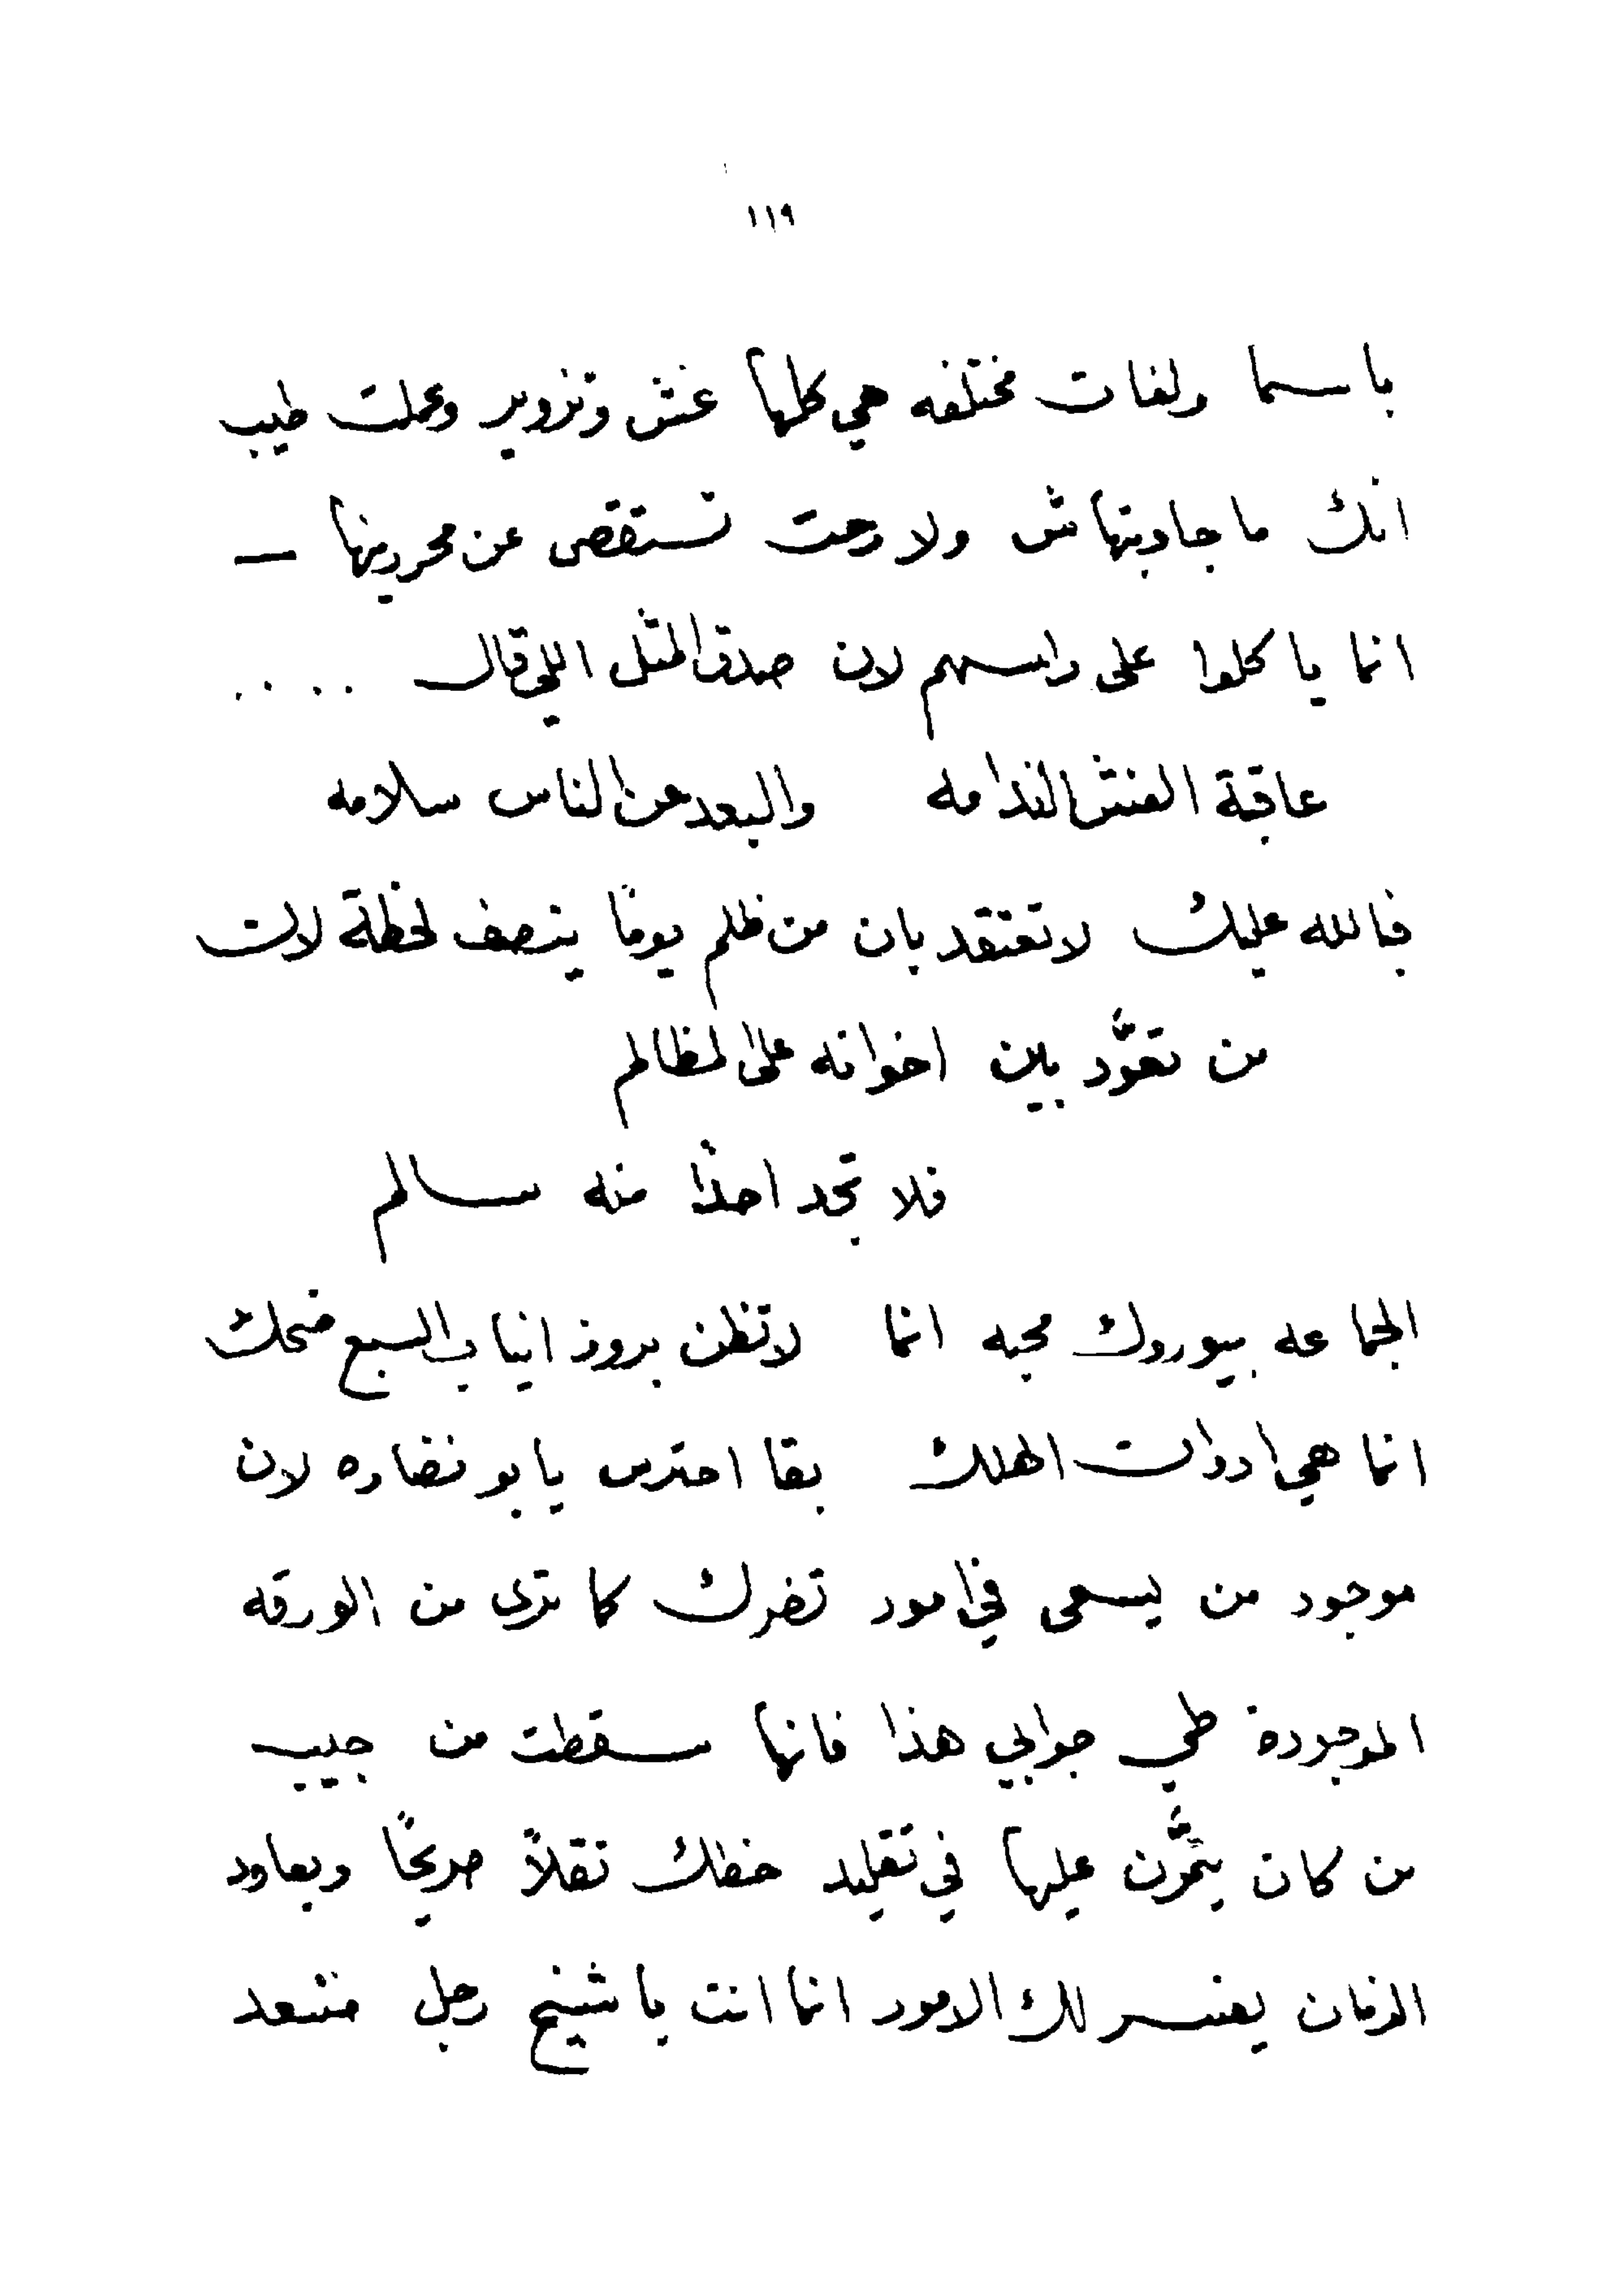 ١١٩
باسما ولغات مختلفه هي كلها غش وتزوير وعملت طيب
انك ما جاوبتهاش ولا رحت تستقصى عن محررينها —
انما ياكلوا على راسهم لان صدق المثل اللي قال ....
عاقبة الغش الندامه والبعد عن الناس سلامه
فبالله عليك لا تعتقد بان من ظلم يومًا ينصف لحظة لان
من تعوَّد بين اخوانه على المظالم
فلا تجد احدًا منه سالم
الجماعه بيوروك محبه انما لا تظن بروز انياب السبع ضحك
انما هي ادوات الهلاك بقا احترس يابو نضاره لان
موجود من يسعى في امور تضرك كما ترى من الورقه
الموجودة طي جوابي هذا فانها سقطت من جيب
من كان يتمرَّن عليها في تقليد خطك نقلاً صريحًا وبعاود
الزمان يفسر لك الامور انما انت يا شيخ رجل